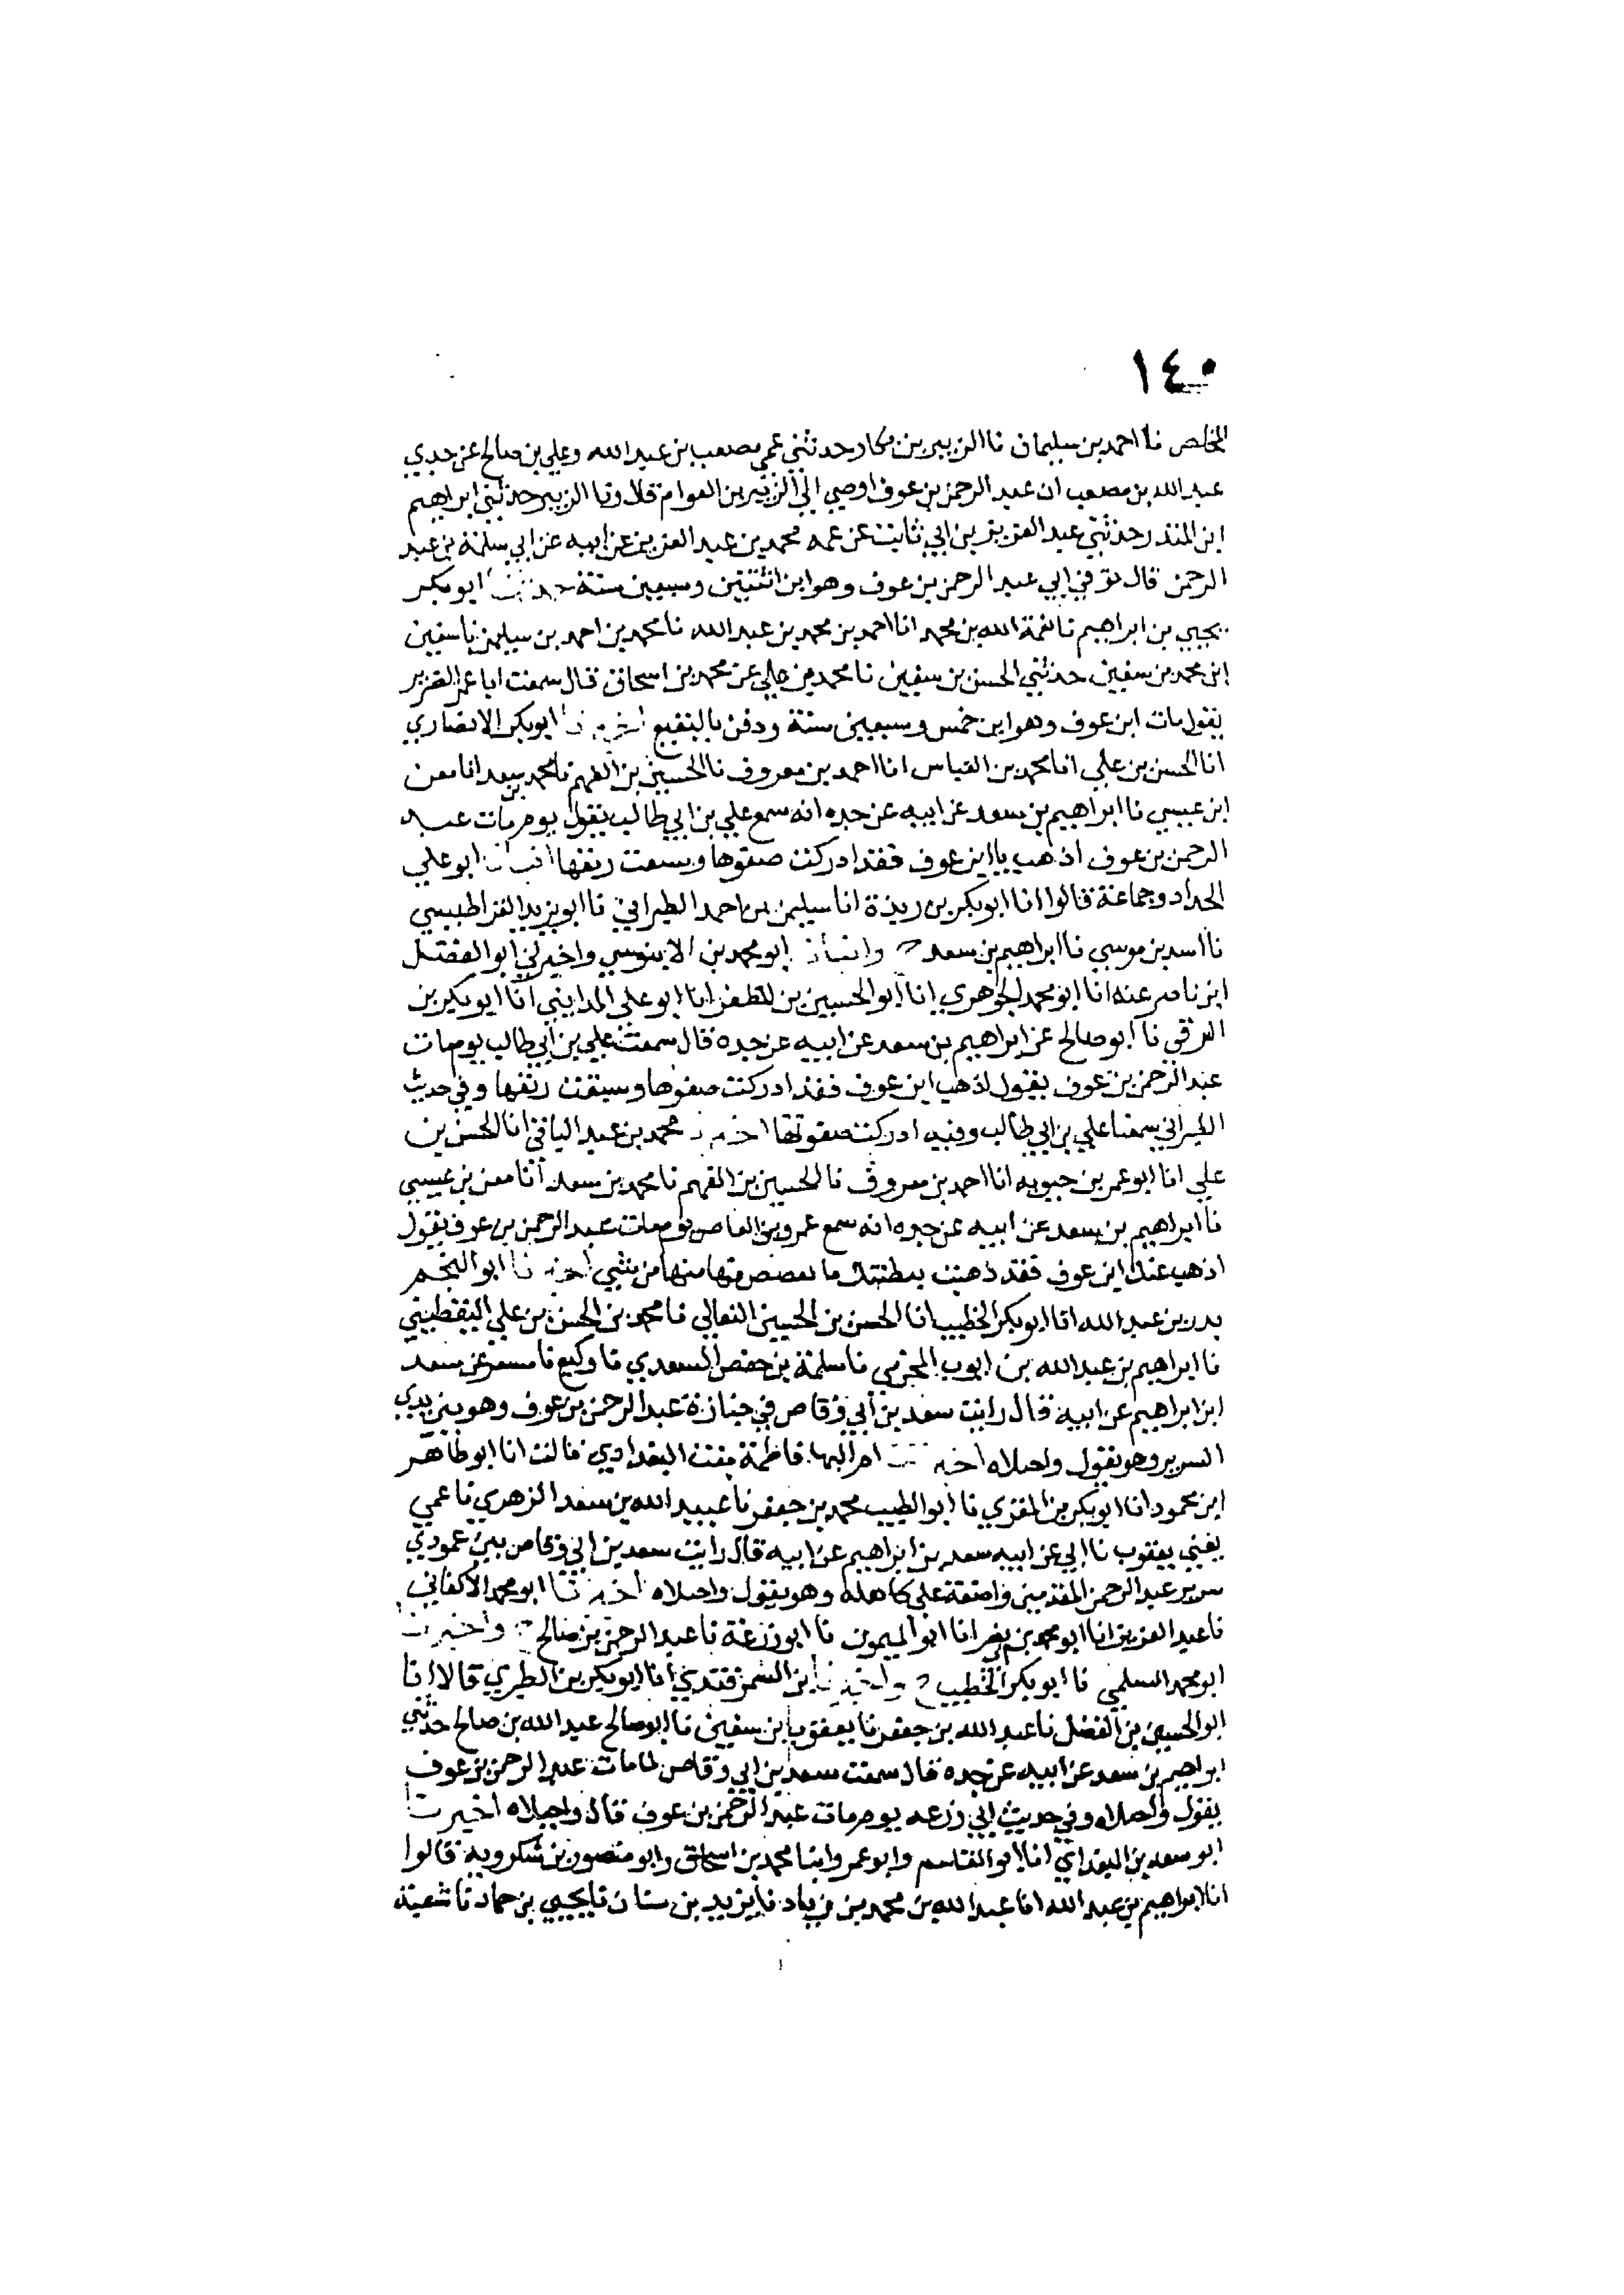 ١٤٠
المخلص نا احمد بن سليمان نا الزبير بن بكار حدثني عمي مصعب بن عبد الله وعلي بن صالح عن جدي
عبد الله بن مصعب ان عبد الرحمن بن عوف اوصي الي الزبير بن العوام قال ونا الزبير حدثني ابراهيم
ابن المنذر حدثني عبد العزيز بن ابي ثابت عن عمه محمد بن عبد العزيز عن ابيه عن ابي سلمة بن عبد
الرحمن قال توفي ابي عبد الرحمن بن عوف وهو ابن اثنتين وسبعين سنة حدثنا ابو بكر
يحيي بن ابراهيم نا نعمة الله بن محمد انا احمد بن محمد بن عبد الله نا محمد بن احمد بن سليمن نا سفين
ابن محمد بن سفين حدثني الحسن بن سفين نا محمد بن علي عن محمد بن اسحاق قال سمعت ابا عمر الضرير
يقول مات ابن عوف وهو ابن خمس وسبعين سنة ودفن بالبقيع اخبرنا ابو بكر الانصاري
انا الحسن بن علي انا محمد بن العباس انا احمد بن معروف نا الحسين بن الفهم نا محمد بن سعد انا معن
ابن عيسي نا ابراهيم بن سعد عن ابيه عن جده انه سمع علي بن ابي طالب يقول يوم مات عبد
الرحمن بن عوف اذهب يا ابن عوف فقد ادركت صفوها وسبقت رنقها انبانا ابو علي
الحداد وجماعة قالوا انا ابو بكر بن ريذة انا سليمن بن احمد الطبراني نا ابو يزيد القراطيسي
نا اسد بن موسي نا ابراهيم بن سعد ح وانبانا ابو محمد بن الابنوسي واخبرني ابو الفضل
ابن ناصر عنه انا ابو محمد الجوهري انا ابو الحسين بن المظفر انا ابو علي المدايني انا ابو بكر بن
البرقي نا ابو صالح عن ابراهيم بن سعد عن ابيه عن جده قال سمعت علي بن ابي طالب يوم مات
عبد الرحمن بن عوف يقول اذهب ابن عوف فقد ادركت صفوها وسبقت رنقها وفي حديث
الطبراني سمعنا علي بن ابي طالب وفيه ادركت صفوتها اخبرنا محمد بن عبد الباقي انا الحسن بن
علي انا ابو عمر بن حيويه انا احمد بن معروف نا الحسين بن الفهم نا محمد بن سعد انا معن بن عيسي
نا ابراهيم بن سعد عن ابيه عن جده انه سمع عمرو بن العاص يوم مات عبد الرحمن بن عوف يقول
اذهب عنك ابن عوف فقد ذهبت ببطنتك ما تغضغض منها من شي اخبرنا ابو النجم
بدر بن عبد الله انا ابو بكر الخطيب انا الحسن بن الحسين النعالي نا محمد بن الحسن بن علي اليقطيني
نا ابراهيم بن عبد الله بن ايوب المخرمي نا سلمة بن حفص السعدي نا وكيع نا مسعر عن سعد
ابن ابراهيم عن ابيه قال رايت سعد بن ابي وقاص في جنازة عبد الرحمن بن عوف وهو بين يدي
السرير وهو يقول واجبلاه اخبرتنا ام البها فاطمة بنت البغدادي قالت انا ابو طاهر
ابن محمود انا ابو بكر بن المقري نا ابو الطيب محمد بن جعفر نا عبيد الله بن سعد الزهري نا عمي
يعني يعقوب نا ابي عن ابيه سعد بن ابراهيم عن ابيه قال رايت سعد بن ابي وقاص بين عمودي
سرير عبد الرحمن المقدمين واضعة علي كاهله وهو يقول واجبلاه اخبرنا ابو محمد الاكفاني
نا عبد العزيز انا ابو محمد بن ابي نصر انا ابو الميمون نا ابو زرعة نا عبد الرحمن بن صالح ح واخبرنا
ابو محمد السلمي نا ابو بكر الخطيب ح واخبرنا ابن السمرقندي انا ابو بكر بن الطبري قالا انا
ابو الحسين بن الفضل نا عبد الله بن جعفر نا يعقوب بن سفين نا ابو صالح عبد الله بن صالح حدثني
ابراهيم بن سعد عن ابيه عن جده قال سمعت سعد بن ابي وقاص لما مات عبد الرحمن بن عوف
يقول واجبلاه وفي حديث ابي زرعه يوم مات عبد الرحمن بن عوف قال واجبلاه اخبرنا
ابو سعد بن البغدادي انا ابو القاسم وابو عمرو ابنا محمد بن اسحاق وابو منصور بن شكرويه قالوا
انا ابراهيم بن عبد الله انا عبد الله بن محمد بن زياد نا يزيد بن سنان نا يحيي بن حماد نا شعبة